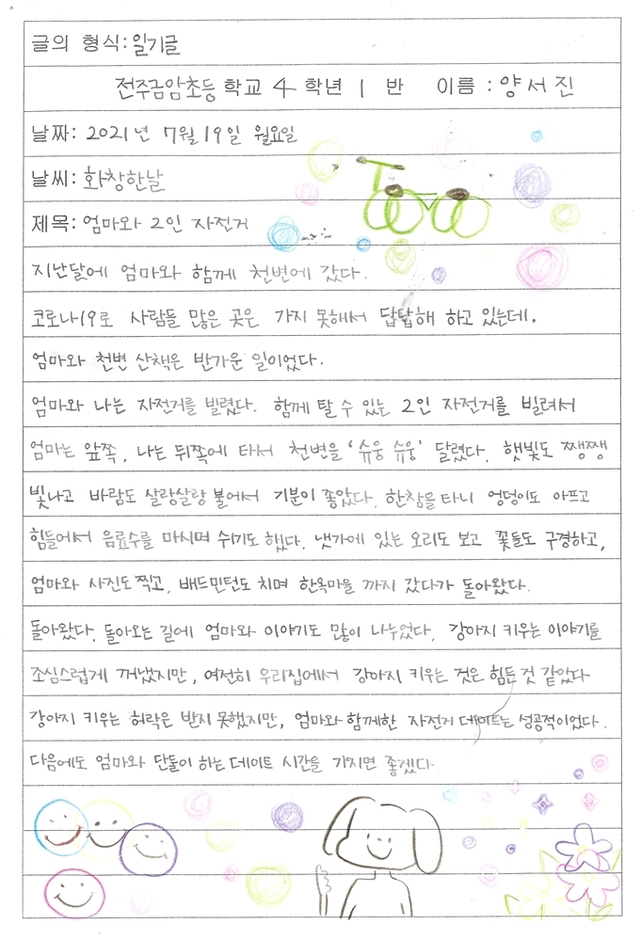 글의 형식: 일기글
전주금암초등 학교 4 학년 1 반 이름 : 양서진
날짜: 2021년 7월 19일 월요일
날씨: 화창한날
제목: 엄마와 2인 자전거
지난달에 엄마와 함께 천변에 갔다.
코로나19로 사람들 많은 곳은 가지 못해서 답답해 하고 있는데.
엄마와 천변 산책은 반가운 일이었다.
엄마와 나는 자전거를 빌렸다. 함께 탈 수 있는 2인 자전거를 빌려서
엄마는 앞쪽, 나는 뒤쪽에 타서 천변을 '슈웅 슈웅' 달렸다. 햇빛도 쨍쨍
빛나고 바람도 살랑살랑 불어서 기분이 좋았다. 한참을 타니 엉덩이도 아프고
힘들어서 음료수를 마시며 쉬기도 했다. 냇가에 있는 오리도 보고 꽃들도 구경하고,
엄마와 사진도 찍고, 배드민턴도 치며 한옥마을 까지 갔다가 돌아왔다.
돌아왔다. 돌아오는 길에 엄마와 이야기도 많이 나누었다. 강아지 키우는 이야기를
조심스럽게 꺼냈지만, 여전히 우리집에서 강아지 키우는 것은 힘든 것 같았다
강아지 키우는 허락은 받지 못했지만, 엄마와 함께한 자전거 데이트는 성공적이었다.
다음에도 엄마와 단둘이 하는 데이트 시간을 가지면 좋겠다.